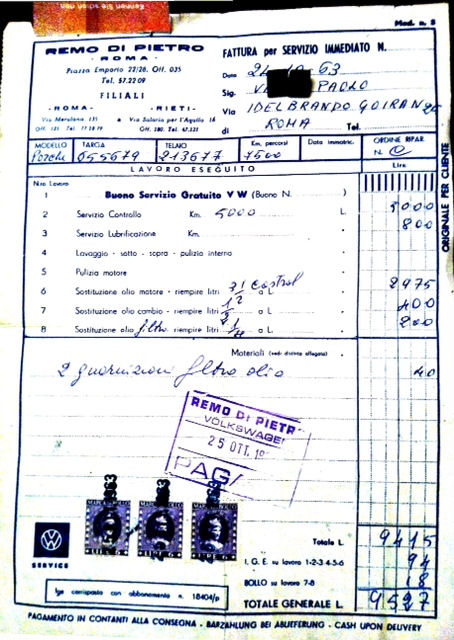 Kennen Sie schon den
Mod. n. 5
REMO DI PIETRO
- ROMA -
Piazza Emporio 22/28, Off. 035
Tel. 57.22.09
FILIALI
- ROMA - - RIETI -
Via Merulana 135 e Via Salaria per l'Aquila 16
FATTURA per SERVIZIO IMMEDIATO N.
Data 24 10 63
Sig. PAOLO
Via IDELBRANDO GOIRAN 25
di ROMA Tel.
MODELLO TARGA TELAIO Km. percorsi Data immatric. ORDINE RIPAR.
055679 213677 7500 N.
LAVORO ESEGUITO Lire
N.ro Lavoro
1 Buono Servizio Gratuito V W (Buono N. )
2 Servizio Controllo Km. 5000 L. 5000
3 Servizio Lubrificazione Km. 800
4 Lavaggio - sotto - sopra - pulizia interna
5 Pulizia motore
6 Sostituzione olio motore - riempire litri 3 1/2 Castrol a L. 2975
7 Sostituzione olio cambio - riempire litri a L. 400
8 Sostituzione olio filtro riempire litri a L. 200
Materiali (vedi distinta allegata)
2 guarnizioni filtro olio 40
REMO DI PIETR
VOLKSWAGEN
25 OTT. 19
PAGA
MARCA DA BOLLO MARCA DA BOLLO MARCA DA BOLLO
LIRE 6 LIRE 6 LIRE 6
SERVICE
Totale L. 9415
I. G. E. su lavoro 1-2-3 4-5-6 94
BOLLO su lavoro 7-8 18
Ige corrisposta con abbonamento n. 18404/p
TOTALE GENERALE L. 9527
PAGAMENTO IN CONTANTI ALLA CONSEGNA - BARZAHLUNG BEI ABLIEFERUNG - CASH UPON DELIVERY
ORIGINALE PER CLIENTE